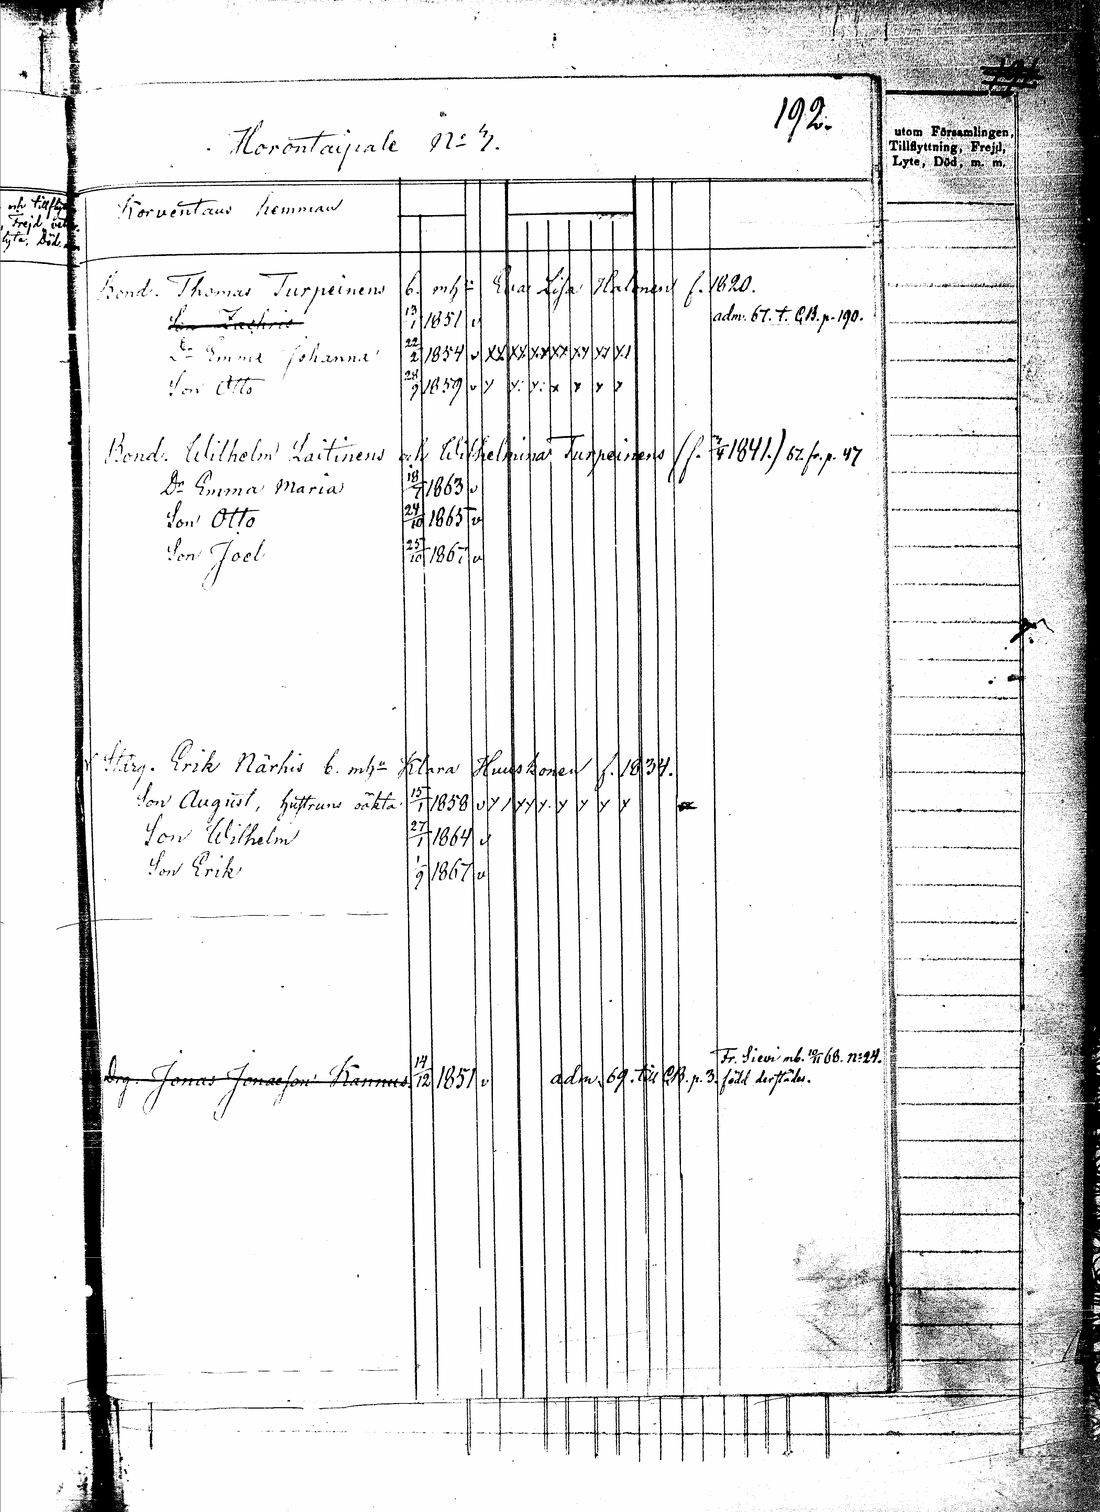 192.
Horontaipale No 7.
utom Församlingen,
Tillflyttning, Frejd,
Lyte, Död, m. m.
och tillfly
Frejd,
lyte. Död
Korventaus hemman
Bond. Thomas Turpeinens b. m hu Eva Lisa Halonen f. 1820.
Son Zachris 13/1 1851 v adm. 67. t. CB. p. 190.
Dr Emma Johanna 22/2 1854 v xx xx xx xx xy xy x1
Son Otto 28/9 1859 v y y: y: x y y y
Bond. Wilhelm Laitinens och Wilhelmina Turpeinens (f. 1841.) 67. fr. p. 47
Dr Emma Maria 18/7 1863 v
Son Otto 24/10 1865 v
Son Joel 25/10 1867 v
v Stärg. Erik Närhis b. m hu Klara Huuskonen f. 1834.
Son August, hustruns oäkta 15/1 1858 v y 1 yy y. y y y y
Son Wilhelm 27/1 1864 v
Son Erik 1/9 1867 v
Fr. Sievi mb. 68. no 24.
Drg. Jonas Jonasson Kannus. 14/12 1851 v adm. 69. till CB. p. 3. född derstädes.